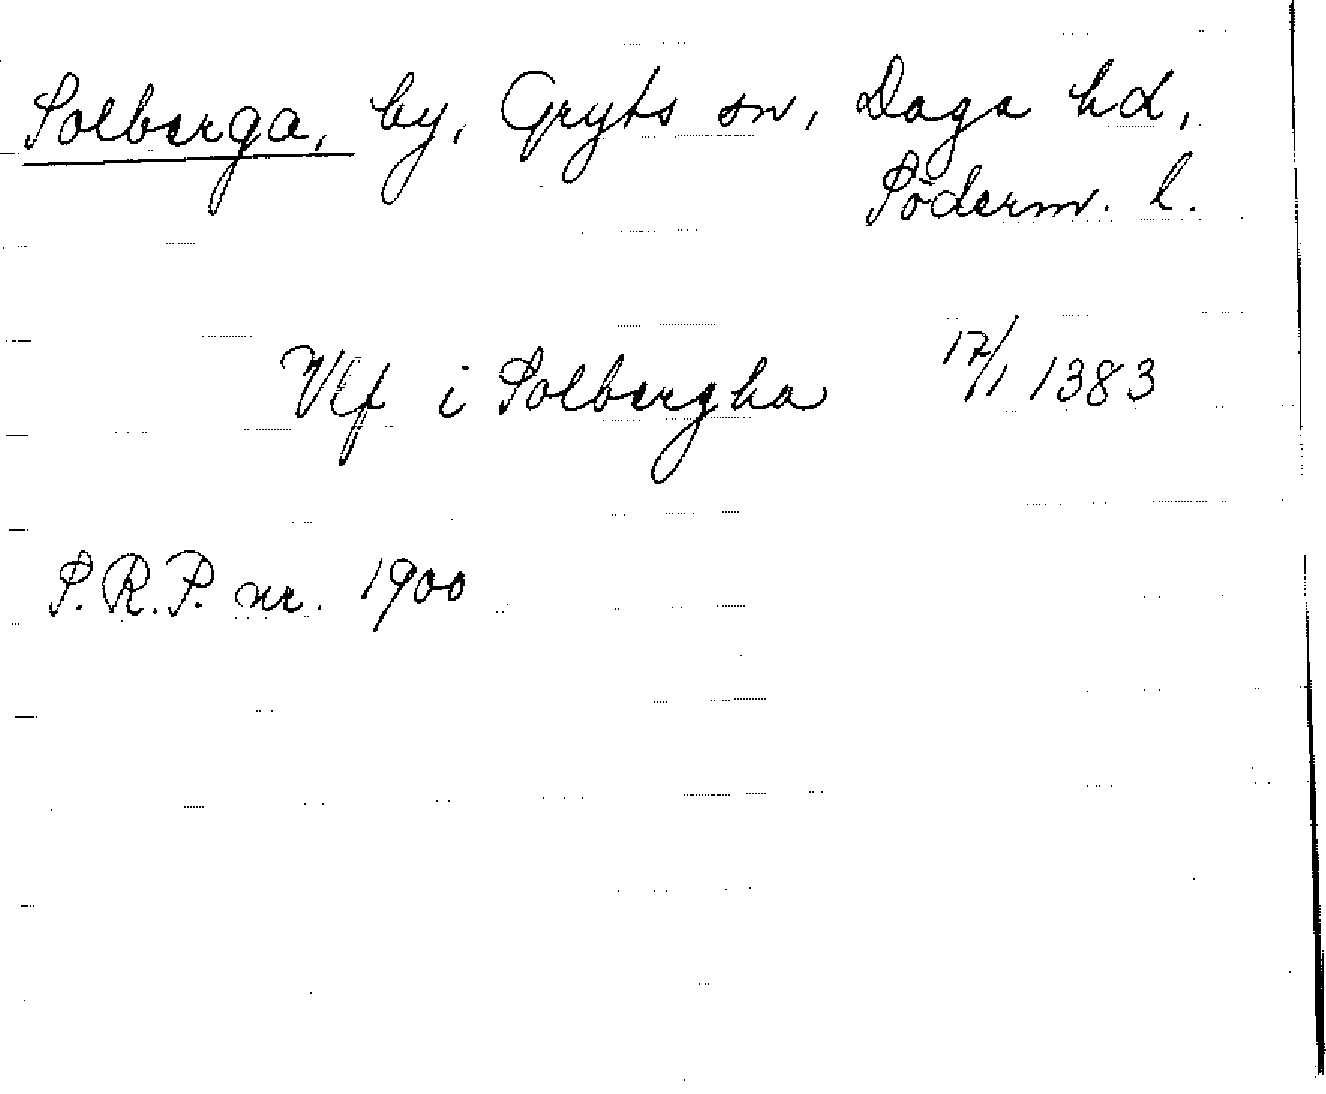 Solberga, by, Gryts sn, Daga hd,
Söderm. l.
Vlf i Solbergha 17/1 1383
S.R.P. nr. 1900